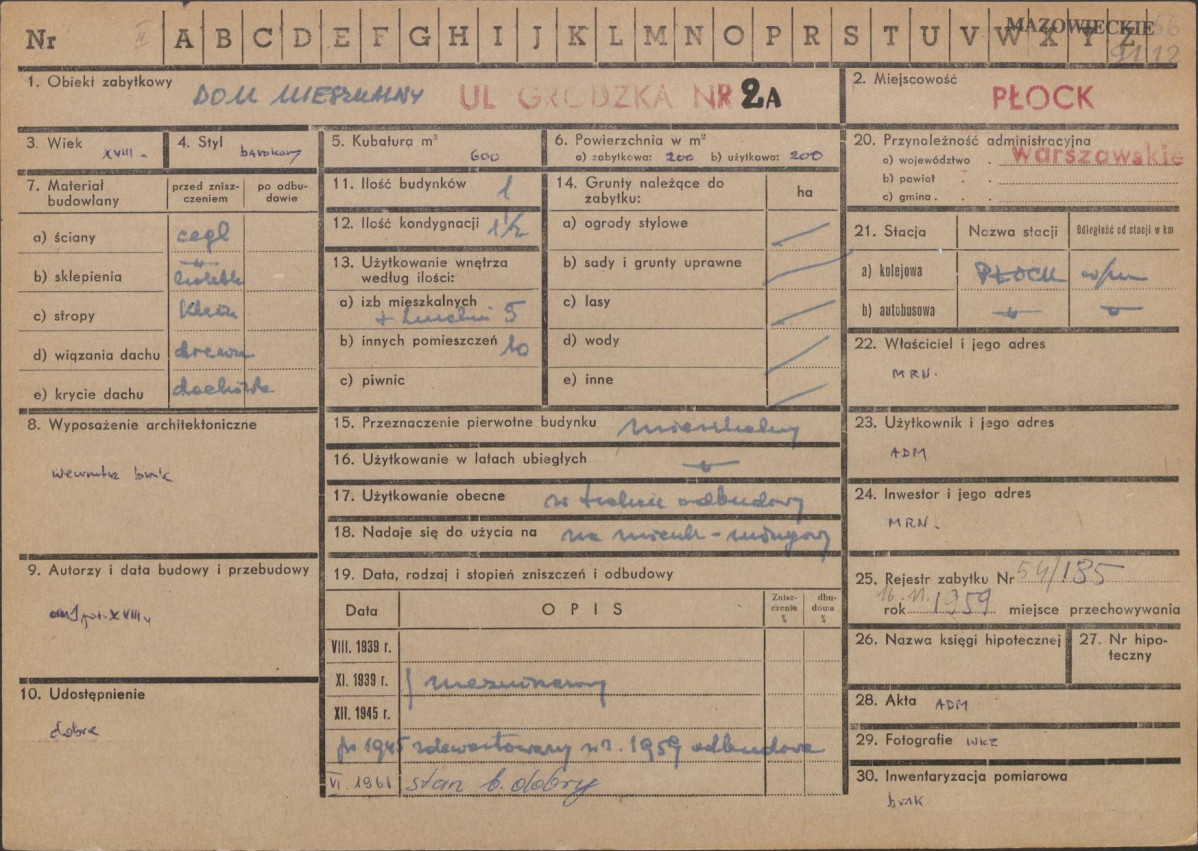 Nr II A B C D E F G H I J K L M N O P R S T U V W X Y Z
MAZOWIECKIE
1. Obiekt zabytkowy DOM MIESZKALNY UL GRODZKA NR 2A
2. Miejscowość PŁOCK
3. Wiek XVIII
4. Styl barokowy
5. Kubatura m³ 600
6. Powierzchnia w m²
a) zabytkowa: 200 b) użytkowa: 200
20. Przynależność administracyjna
a) województwo Warszawskie
b) powiat
c) gmina
7. Materiał budowlany
przed zniszczeniem
po odbudowie
a) ściany cegł
b) sklepienia
c) stropy Klein
d) wiązania dachu drewn
e) krycie dachu dachówka
11. Ilość budynków 1
12. Ilość kondygnacji 1 1/2
13. Użytkowanie wnętrza według ilości:
a) izb mieszkalnych + kuchni 5
b) innych pomieszczeń 10
c) piwnic
14. Grunty należące do zabytku:
ha
a) ogrody stylowe
b) sady i grunty uprawne
c) lasy
d) wody
e) inne
21. Stacja Nazwa stacji Odległość od stacji w km
a) kolejowa PŁOCK
b) autobusowa
22. Właściciel i jego adres
MRN.
8. Wyposażenie architektoniczne
wewnątrz brak
15. Przeznaczenie pierwotne budynku mieszkalny
16. Użytkowanie w latach ubiegłych
17. Użytkowanie obecne w trakcie odbudowy
18. Nadaje się do użycia na na mieszk -
23. Użytkownik i jego adres
ADM
24. Inwestor i jego adres
MRN.
9. Autorzy i data budowy i przebudowy
poł. XVIII
19. Data, rodzaj i stopień zniszczeń i odbudowy
Data OPIS Zniszczenia % dbudowa %
VIII. 1939 r.
XI. 1939 r. niezniszczony
XII. 1945 r.
po 1945 zdewastowany w r. 1959 odbudowa
VI 1961 stan b. dobry
25. Rejestr zabytku Nr 54/185
16.11.
rok 1959 miejsce przechowywania
26. Nazwa księgi hipotecznej
27. Nr hipoteczny
10. Udostępnienie
dobre
28. Akta ADM
29. Fotografie WKZ
30. Inwentaryzacja pomiarowa
brak